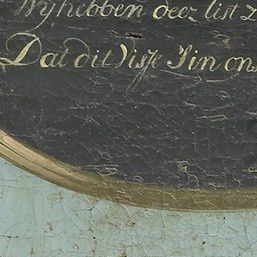 Wij hebben deez list
Dat dit Visje Sin on